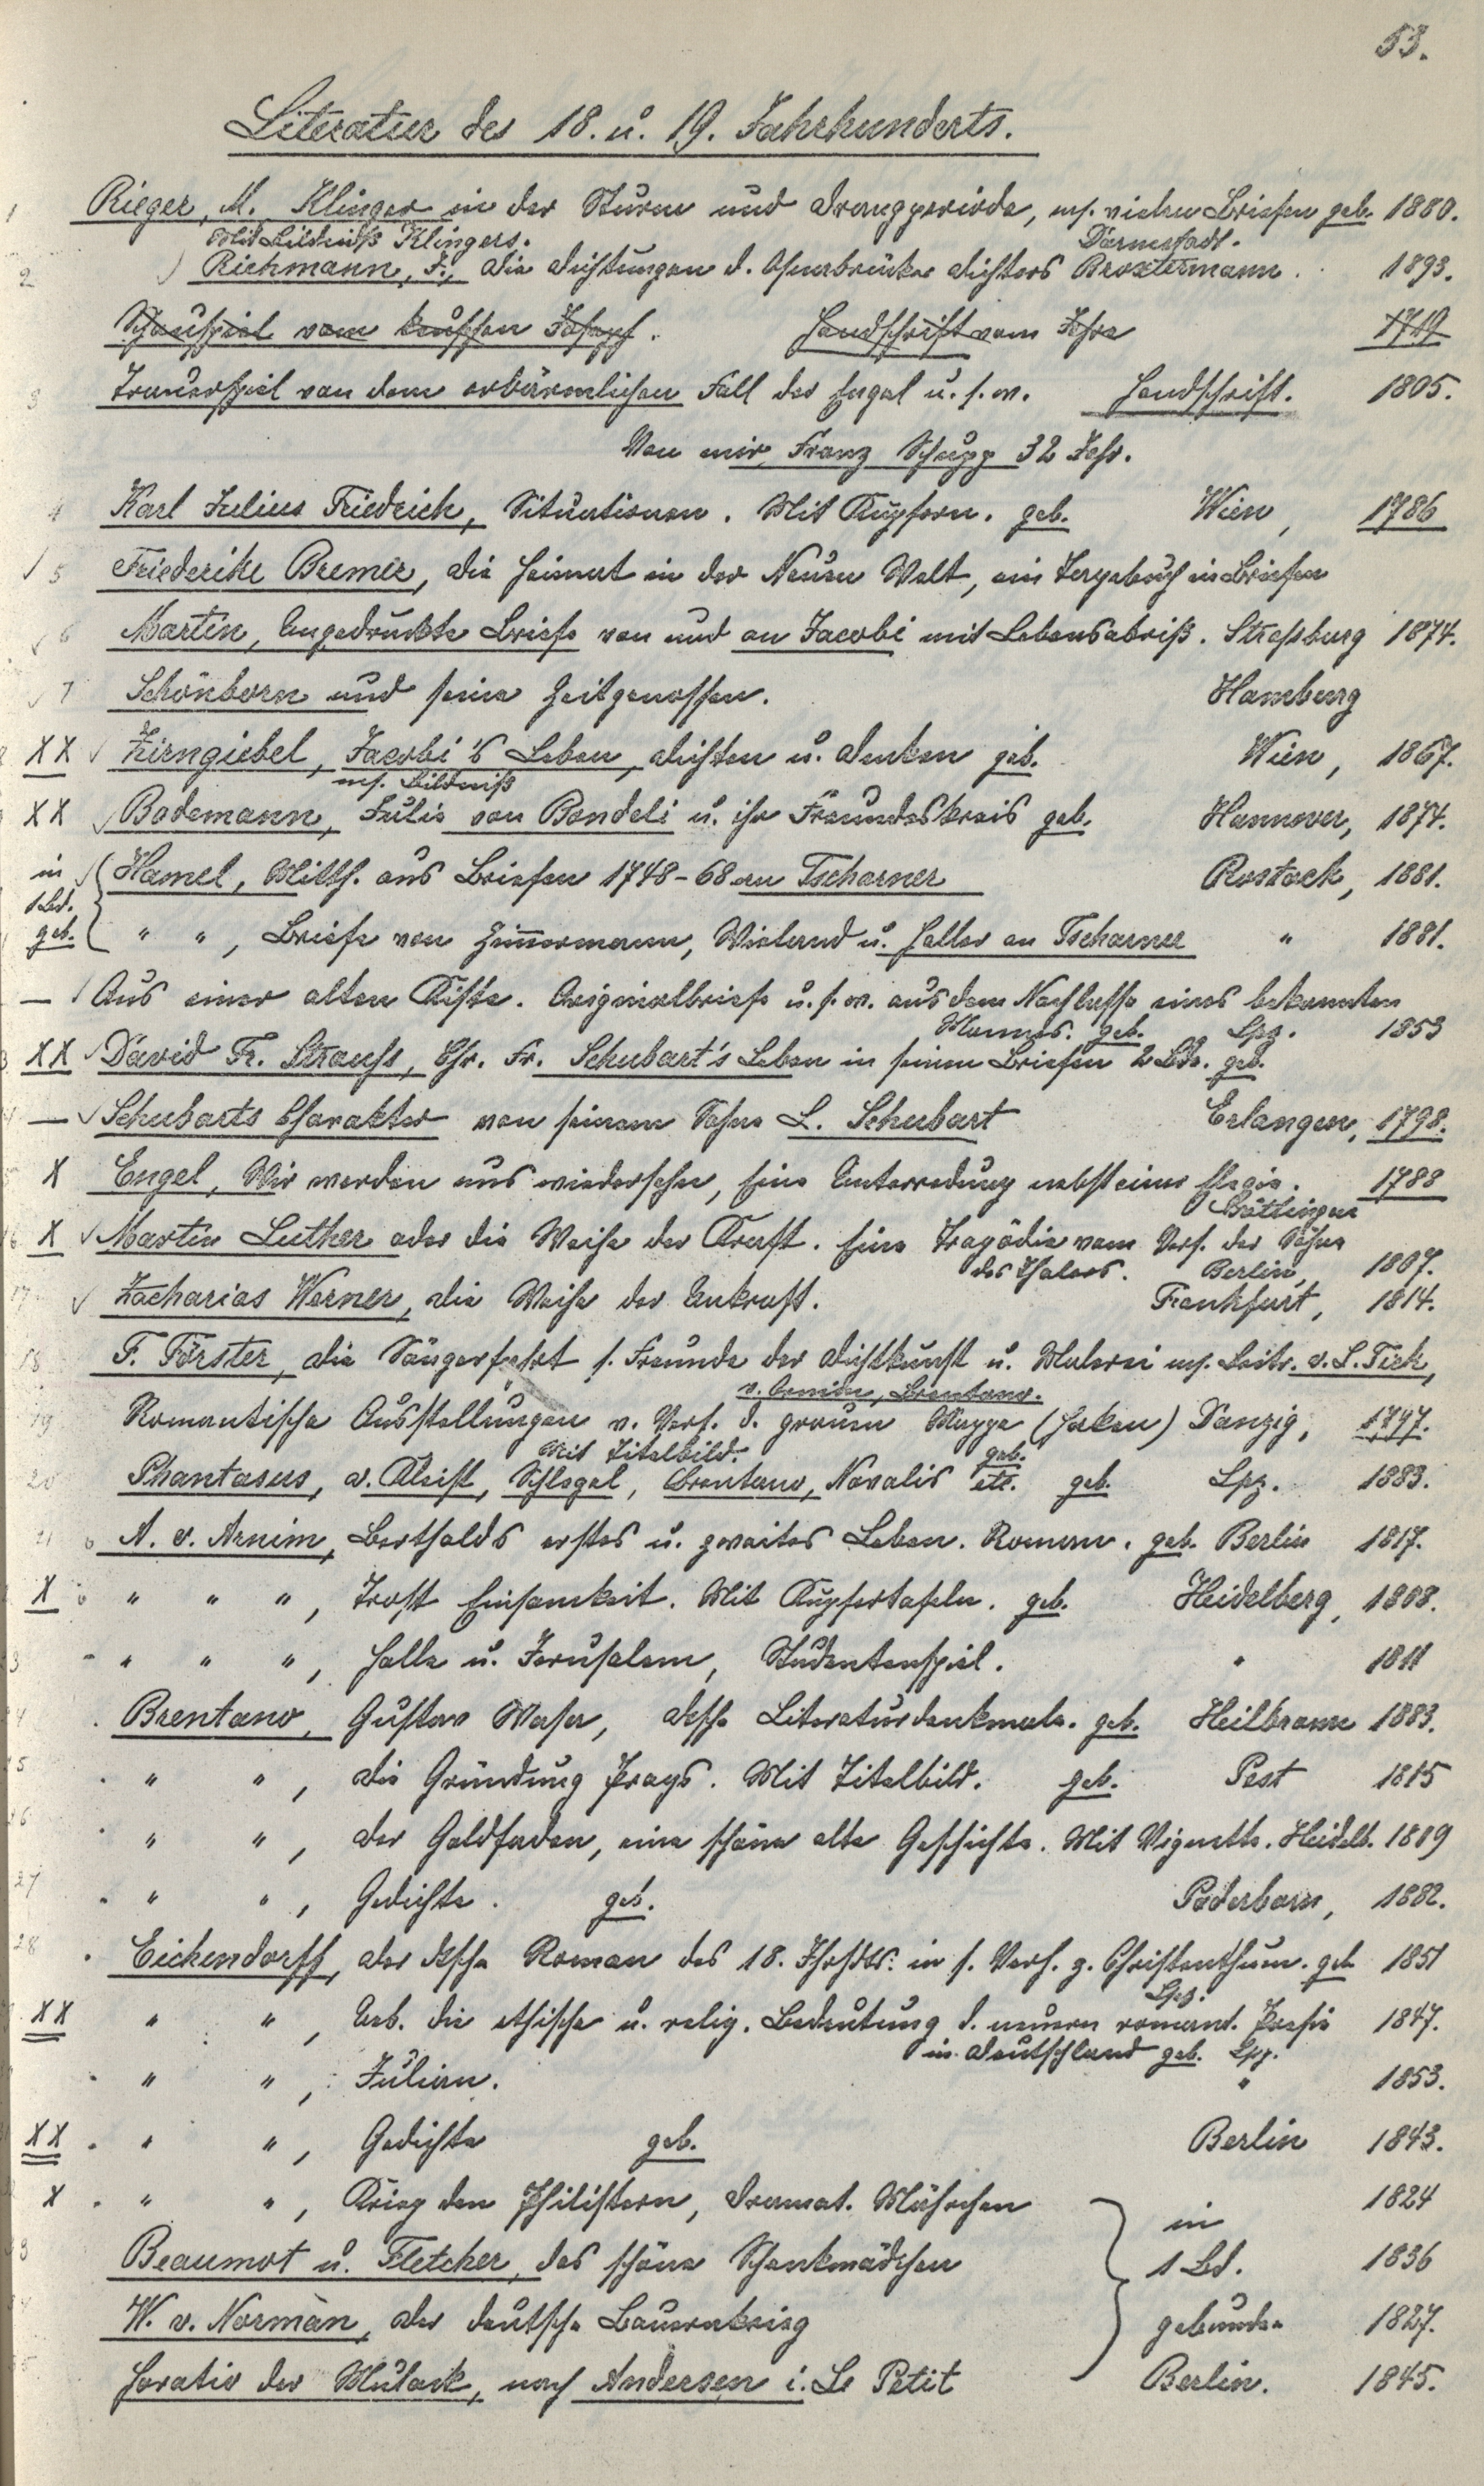 53.
Literatur des 18. u. 19. Jahrhunderts.
1 Rieger, M. Klinger in der Sturm und Drangperiode, mit vielen Briefen geb. 1880.
Mit Bildniß Klingers. Darmstadt.
2 Richmann, F., die Dichtungen d. Osnabrücker Dichters Broxtermann. 1893.
Schauspiel vom keuschen Joseph. Handschrift vom Jahre 1719
3 Trauerspiel von dem erbärmlichen Fall der Engel u. s. w. Handschrift. 1805.
Von mir Franz Schupp 32 Jahr.
4 Karl Julius Friedrich, Situationen. Mit Kupfern. geb. Wien, 1786
✓ 5 Friederike Bremer, die Heimat in der Neuen Welt, ein Tagebuch in Briefen
✓ 6 Martin, Ungedruckte Briefe von und an Jacobi mit Lebensabriß. Straßburg 1874.
✓ 7 Schönborn und seine Zeitgenossen. Hamburg
XX ✓ Zirngiebel, Jacobi's Leben, Dichten u. Denken geb. Wien, 1867.
mit Bildniß
XX ✓ Bodemann, Julie von Bondeli u. ihr Freundeskreis geb. Hannover, 1874.
in 1 Bd. geb. ✓ { Hamel, Mitth. aus Briefen 1748-68 an Tscharner Rostock, 1881.
" " , Briefe von Zimmermann, Wieland u. Haller an Tscharner " 1881.
— ✓ Aus einer alten Kiste. Originalbriefe u. s. w. aus dem Nachlasse eines bekannten
Mannes. geb. Lpz. 1853
XX ✓ David Fr. Strauss, Chr. Fr. Schubart's Leben in seinen Briefen 2 Bde. geb.
— ✓ Schubarts Charakter von seinem Sohne L. Schubart Erlangen, 1798.
X Engel, Wir werden uns wiedersehen, Eine Unterredung nebst einer Elegie. 1788
Göttingen
16 X ✓ Martin Luther oder die Weihe der Kraft. Eine Tragödie vom Verf. der Söhne
des Thales. Berlin, 1807.
17 ✓ Zacharias Werner, die Weihe der Unkraft. Frankfurt, 1814.
18 F. Förster, die Sängerfahrt f. Freunde der Dichtkunst u. Malerei mit Beitr. v. L. Tiek,
v. Arnim, Brentano.
19 Romantische Ausstellungen v. Verf. d. grauen Mappe (Haken) Danzig, 1797.
Mit Titelbild. geb.
20 Phantasus, v. Kleist, Schlegel, Brentano, Novalis etc. geb. Lpz. 1883.
21 A. v. Arnim, Bertholds erstes u. zweites Leben. Roman. geb. Berlin 1817.
X " " " , Trost Einsamkeit. Mit Kupfertafeln. geb. Heidelberg, 1808.
3 " " " , Halle u. Jerusalem, Studentenspiel. " 1811
4 Brentano, Gustav Wasa, dtsche Literaturdenkmale. geb. Heilbronn 1883.
5 " " , die Gründung Prags. Mit Titelbild. geb. Pest 1815
26 " " , der Goldfaden, eine schöne alte Geschichte. Mit Vignette. Heidelb. 1809
27 " " , Gedichte. geb. Paderborn, 1882.
28 Eichendorff, der dtsche Roman des 18. Jhrhdts. in s. Verh. z. Christenthum. geb 1851
Lpz.
XX " " , Ueb. die ethische u. relig. Bedeutung d. neuern romant. Poesie 1847.
in Deutschland geb. Lpz.
" " , Julian. " 1853.
XX " " , Gedichte geb. Berlin 1843.
X " " , Krieg den Philistern, dramat. Mährchen } in 1824
3 Beaumot u. Fletcher, das schöne Schenkmädchen 1 Bd. 1836
W. v. Normàn, der deutsche Bauernkrieg gebunden 1827.
Horatio der Mulack, nach Andersen i. Le Petit Berlin. 1845.